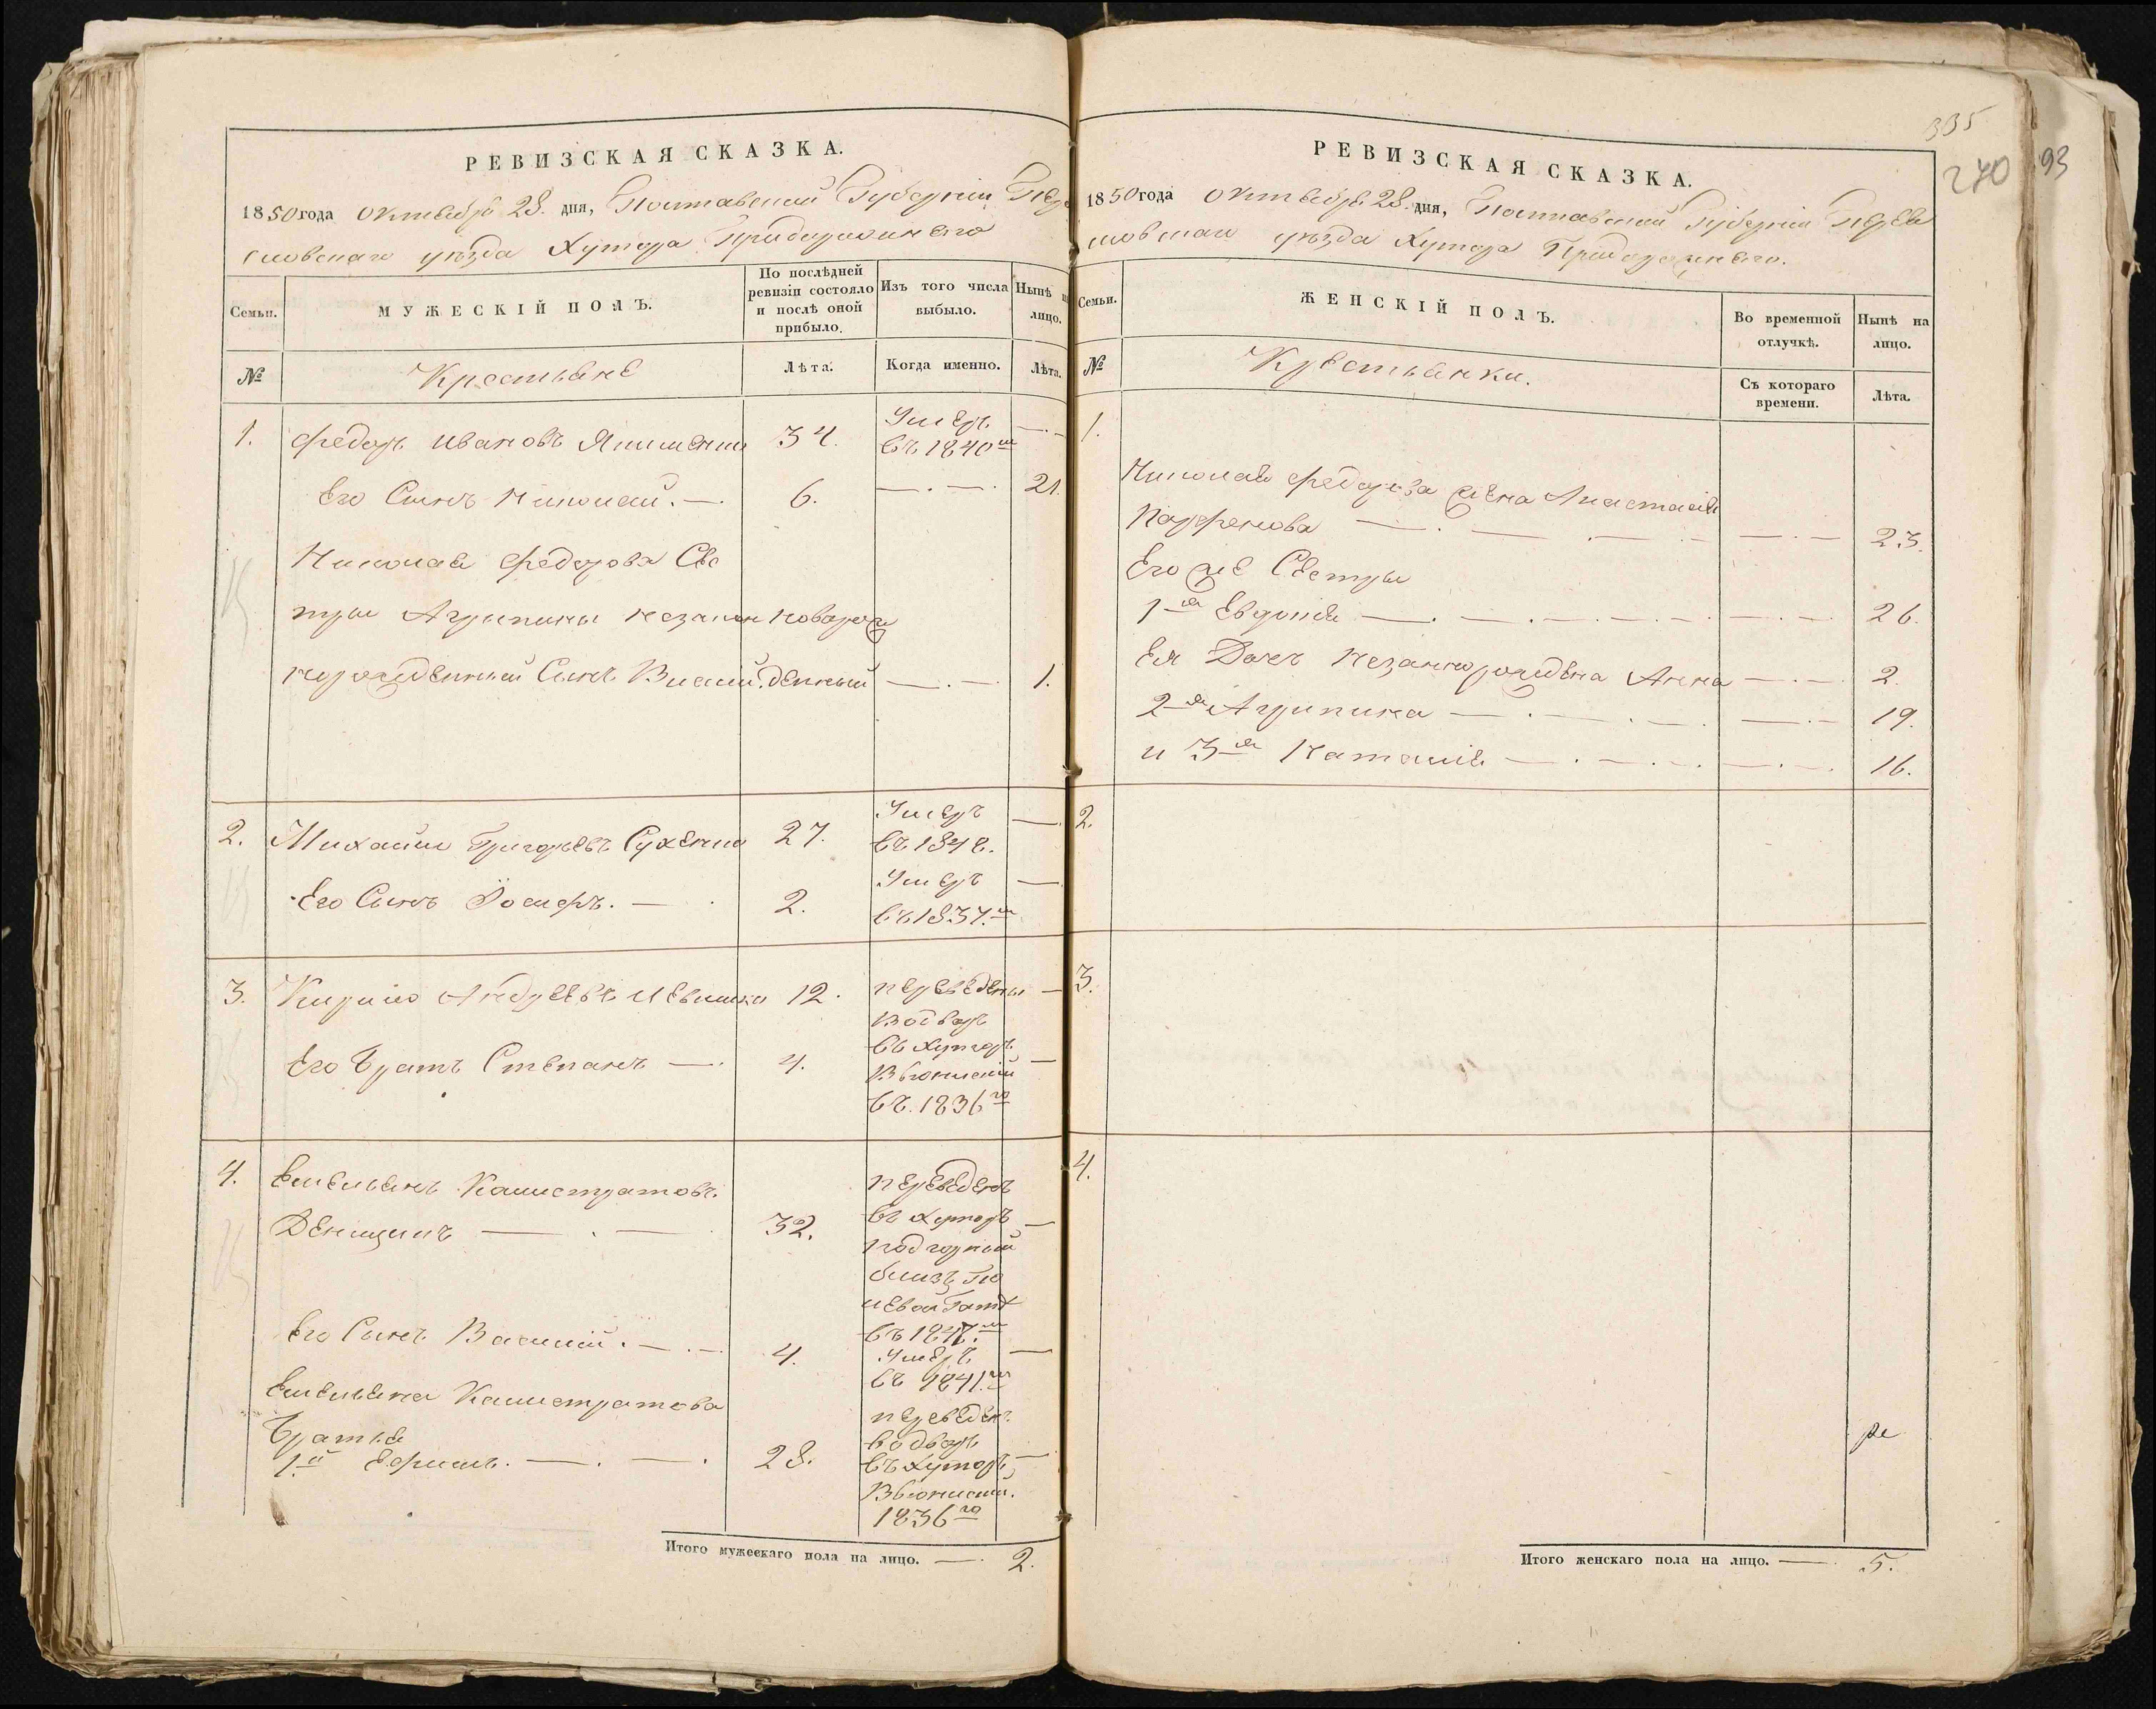 РЕВИЗСКАЯ СКАЗКА.
1850 года Октября 28. дня, Полтавской Губерніи Пере
яловскаго уѣзда Хутора
Семьи.
МУЖЕСКІЙ ПОЛЪ.
По послѣдней ревизіи состояло и послѣ оной прибыло.
Изъ того числа выбыло.
Нынѣ на лицо.
№
Крестьяне
Лѣта.
Когда именно.
Лѣта.
1. Федоръ Ивановъ 34. Умеръ въ 1840м —.—
Его Сынъ Николай. —. 6. —.—. 21.
Николая Федорова Сес
тры Агрипины незакон новорож
норожденный Сынъ Василій. денный —.—. 1.
2. Михайло Григорьевъ Сухенко 27. Умеръ въ 1848. —.
Его Сынъ Іосифъ. — . 2. Умеръ въ 1837.м —
3. Кирило Андреевъ 12. переведены —
во дворъ
въ Хуторъ
Его Братъ Степанъ —. 4. —
въ. 1836го
4. Емельянъ Калистратовъ. переведенъ
Денщикъ — . — . 32. въ Хуторъ —
подгорный
близъ
въ 1847.м
Его Сынъ Василій. —.—. 4. Умеръ —
въ 1841.го
Емельяна Калистратова
Братья переведен.
во дворъ
1.й Ефимъ. —. —. 28. въ Хуторъ —
1836го
Итого мужескаго пола на лицо. —. 2.
335
270
93
РЕВИЗСКАЯ СКАЗКА.
1850 года Октября 28. дня, Полтавской Губерніи Перея
ловскаго уѣзда Хутора
Семьи.
ЖЕНСКІЙ ПОЛЪ.
Во временной отлучкѣ.
Нынѣ на лицо.
№
Крестьянки.
Съ котораго времени.
Лѣта.
1.
Николая Федорова жена Анастасія
Парфенова — . — . — . — —.— 23.
Его же Сестры
1-я Евдокія —. —.—.—.— —.—. 26.
Ея Дочь незаконнорождена Анна —.—. 2.
2-я Агрипина —.—.—. —.— 19.
и 3я Наталія —.—.—. —.—. 16.
2.
3.
4.
Итого женскаго пола на лицо. —. 5.